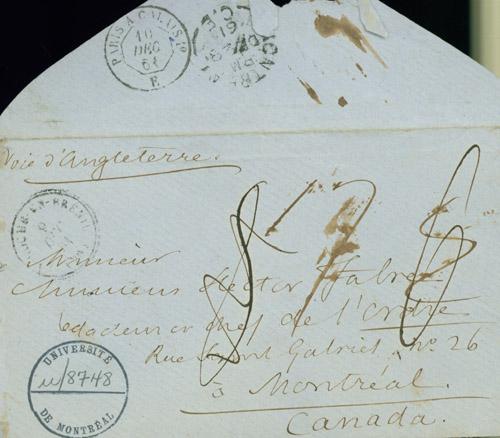 PARIS À CALAIS 1°
10
DEC
61
E
Voie d'Angleterre.
Monsieur
Monsieur Hector Fabre
rédacteur en chef de l'Ordre
Rue Saint Gabriel, no 26
à Montréal.
Canada.
UNIVERSITÉ
u/8748
DE MONTRÉAL